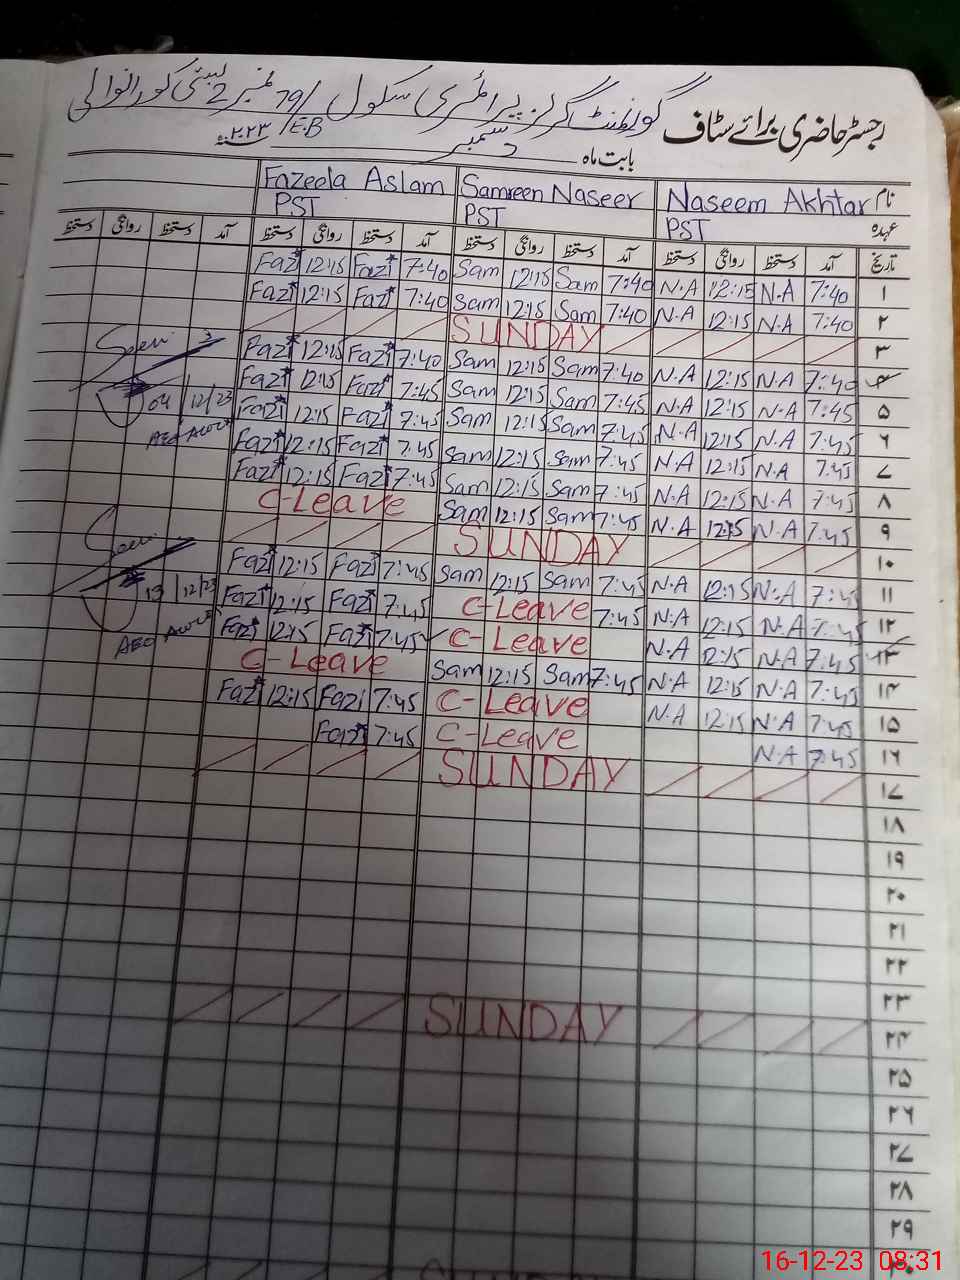 گورنمنٹ گرلز پرائمری سکول 79/ نمبر 2
رجسٹر حاضری برائے سٹاف
E.B/
بابت ماہ دسمبر ۲۰۲۳ء
نام Naseem Akhtar Samreen Naseer Fazeela Aslam
عہدہ PST PST PST
تاریخ آمد دستخط روانگی دستخط آمد دستخط روانگی دستخط آمد دستخط روانگی دستخط آمد دستخط روانگی دستخط
۱ 7:40 N.A 12:15 N.A 7:40 Sam 12:15 Sam 7:40 Fazi 12:15 Fazi
۲ 7:40 N.A 12:15 N.A 7:40 Sam 12:15 Sam 7:40 Fazi 12:15 Fazi
۳ SUNDAY
۴ 7:40 N.A 12:15 N.A 7:40 Sam 12:15 Sam 7:40 Fazi 12:15 Fazi
۵ 7:45 N.A 12:15 N.A 7:45 Sam 12:15 Sam 7:45 Fazi 12:15 Fazi
۶ 7:45 N.A 12:15 N.A 7:45 Sam 12:15 Sam 7:45 Fazi 12:15 Fazi
۷ 7:45 N.A 12:15 N.A 7:45 Sam 12:15 Sam 7:45 Fazi 12:15 Fazi
۸ 7:45 N.A 12:15 N.A 7:45 Sam 12:15 Sam 7:45 Fazi 12:15 Fazi
۹ 7:45 N.A 12:15 N.A 7:45 Sam 12:15 Sam C-Leave
۱۰ SUNDAY
۱۱ 7:45 N.A 12:15 N.A 7:45 Sam 12:15 Sam 7:45 Fazi 12:15 Fazi
۱۲ 7:45 N.A 12:15 N.A 7:45 C-Leave 7:45 Fazi 12:15 Fazi
۱۳ 7:45 N.A 12:15 N.A C-Leave 7:45 Fazi 12:15 Fazi
۱۴ 7:45 N.A 12:15 N.A 7:45 Sam 12:15 Sam C-Leave
۱۵ 7:45 N.A 12:15 N.A C-Leave 7:45 Fazi 12:15 Fazi
۱۶ 7:45 N.A C-Leave 7:45 Fazi
۱۷ SUNDAY
۱۸
۱۹
۲۰
۲۱
۲۲
۲۳
۲۴ SUNDAY
۲۵
۲۶
۲۷
۲۸
۲۹
04/12/23
AEO
13/12/23
AEO
16-12-23 08:31